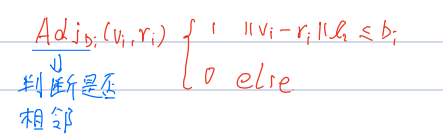 Adj_{bi}(v_i, r_i) { 1 ‖v_i - r_i‖l_2 ≤ b_i
0 else
↓
判断是否
相邻